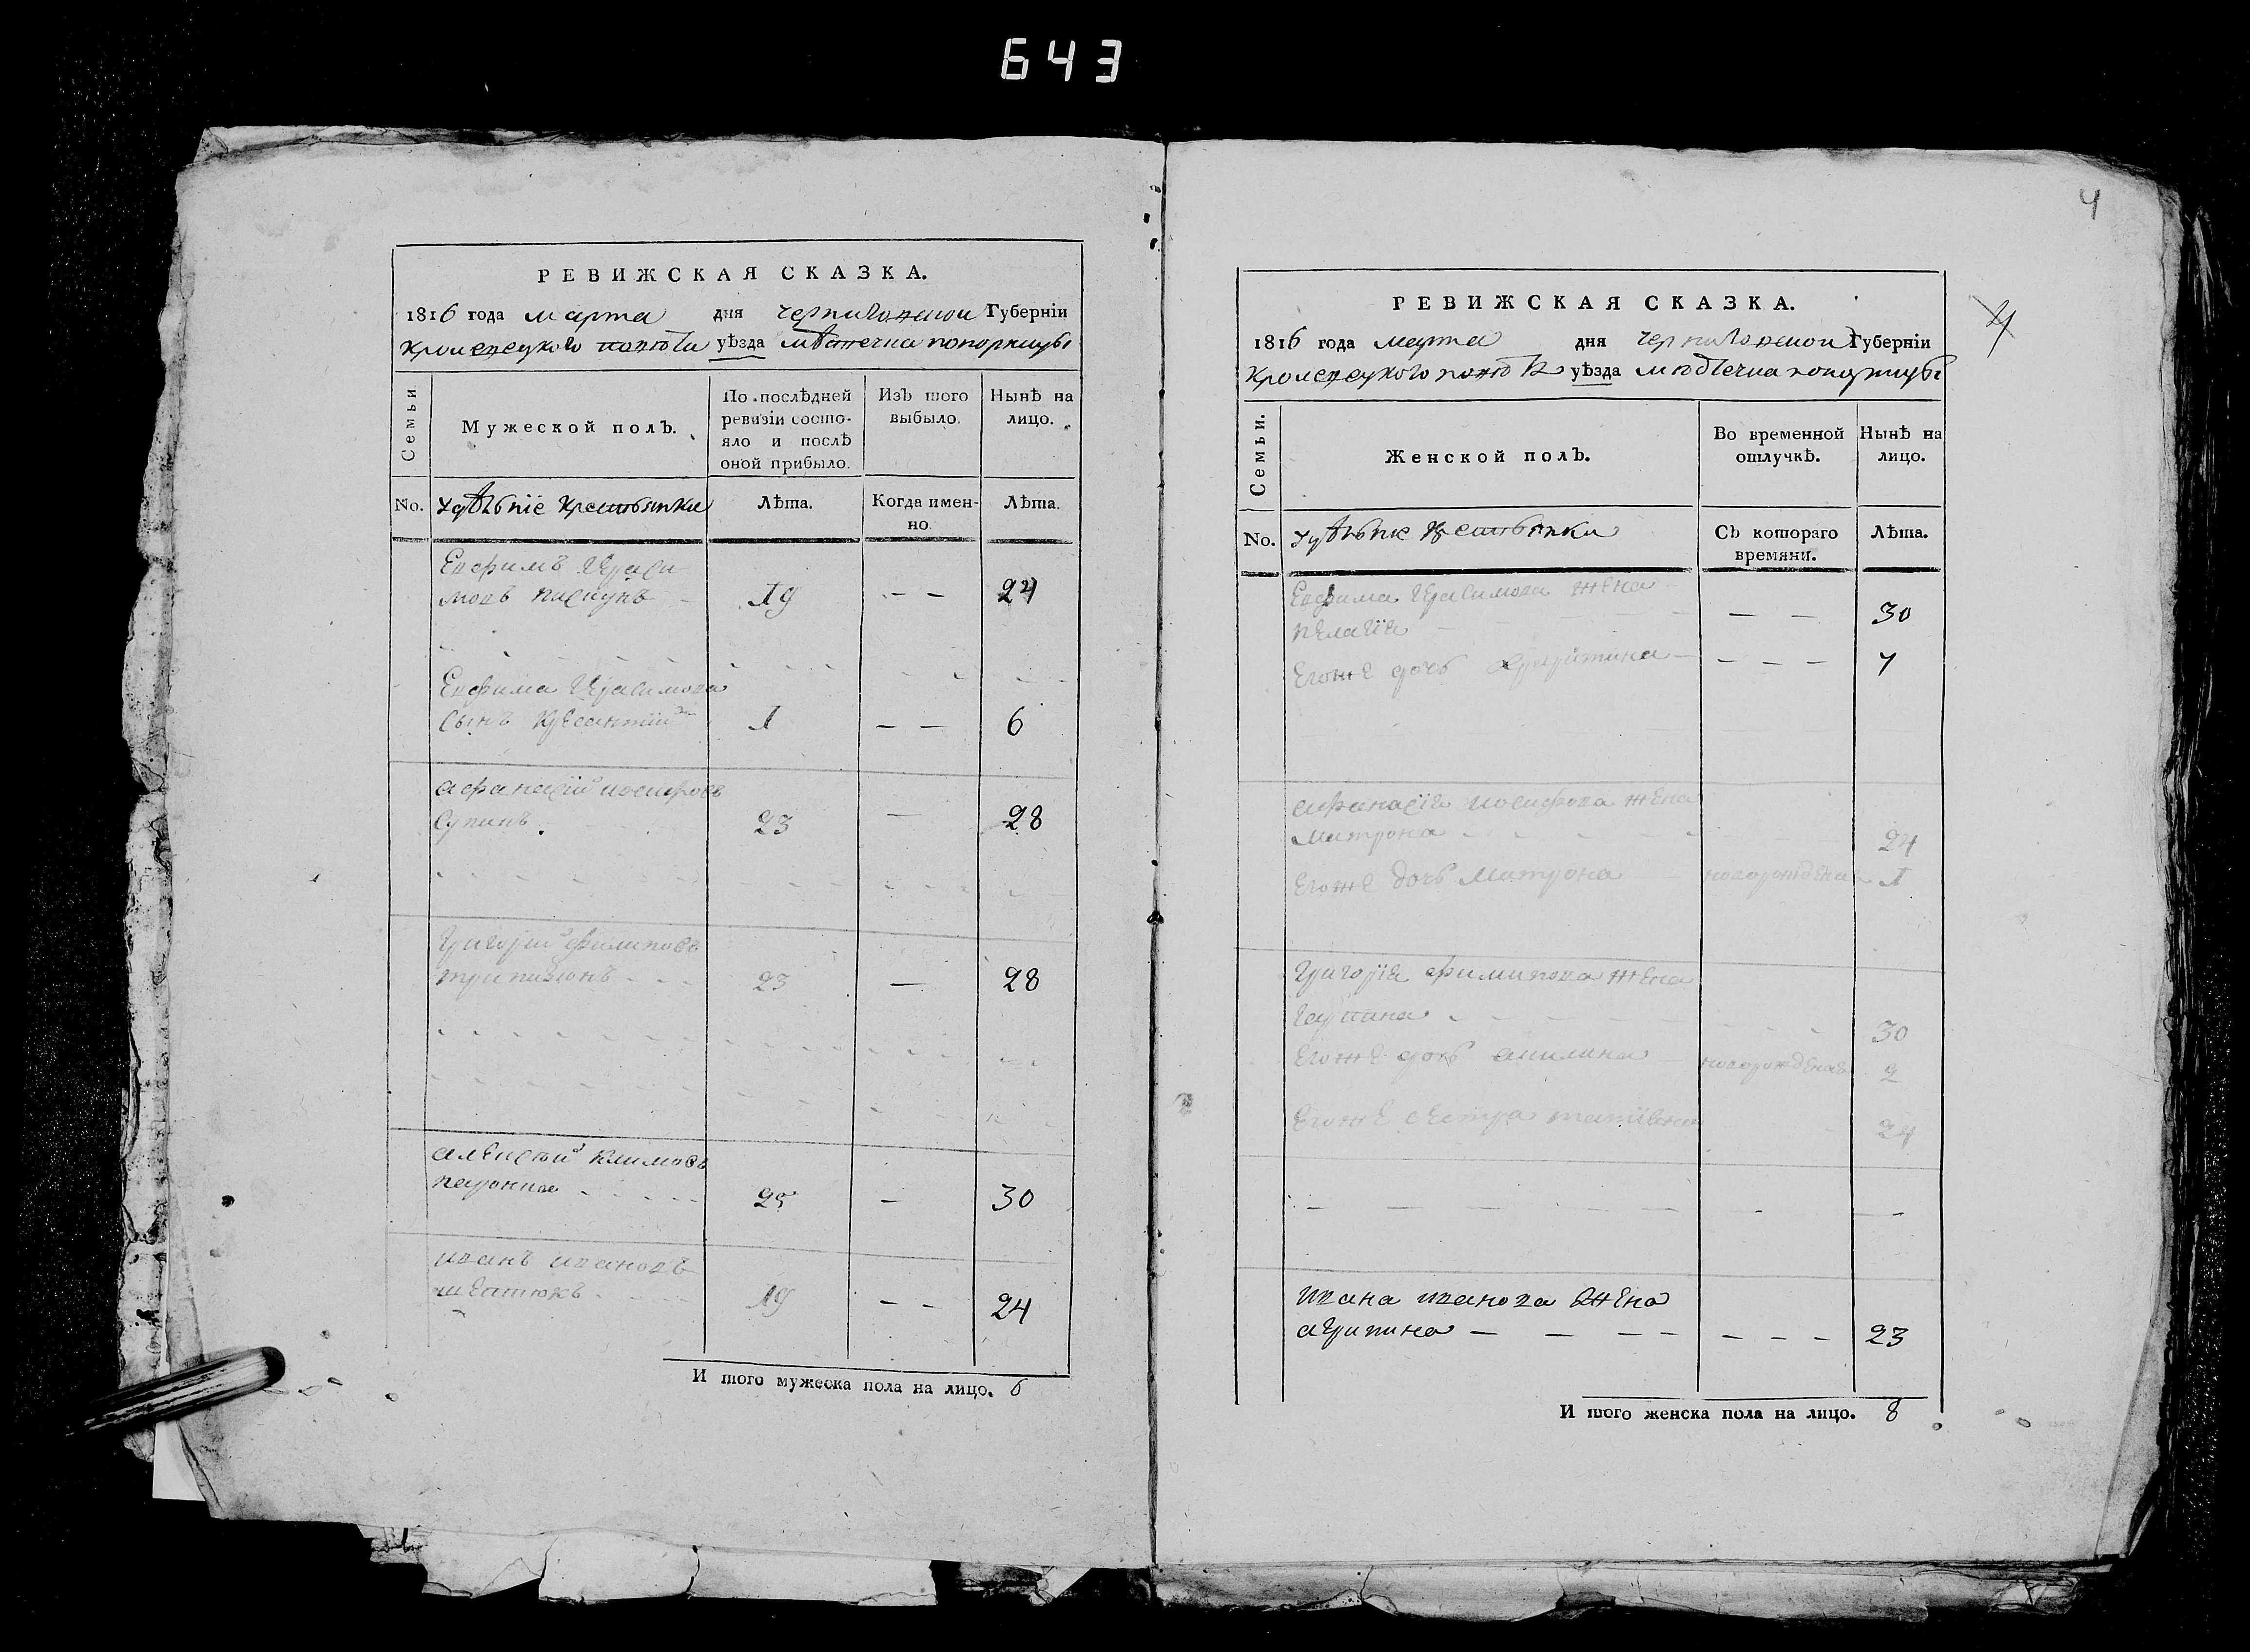 643
РЕВИЖСКАЯ СКАЗКА.
1816 года марта дня черниговской Губерніи
кролевецкого повѣта уѣзда мѣстечка понорницы
Семьи
Мужеской полъ.
По послѣдней ревизіи состояло и послѣ оной прибыло.
Изъ того выбыло.
Нынѣ на лицо.
No.
удѣльніе крестьянки
Лѣта.
Когда именно.
Лѣта.
Евфимъ Гераси
мовъ 19 — — 24
Евфима Герасимова
сынъ 1 — — 6
афанасій иосифовъ
23 — 28
григорій филиповъ
23 — 28
алексѣй климовъ
25 — 30
иванъ ивановъ
19 — — 24
И того мужеска пола на лицо. 6
4
РЕВИЖСКАЯ СКАЗКА.
1816 года марта дня черниговской Губерніи
кролевецкого повѣта уѣзда мѣстечка понорницы
4
Семьи.
Женской полъ.
Во временной отлучкѣ.
Нынѣ на лицо.
No.
удѣльніе крестьянки
Съ котораго времяни.
Лѣта.
Евфима Герасимова жена
пелагія — — 30
егоже дочь — — — 7
афанасія иосифова жена
матрона 24
егоже дочь матрона — новорожденая 1
григорія филипова жена
30
егоже дочь — новорожденая 2
егоже сестра 24
ивана иванова жена
агрипина — — — — — — — 23
И того женска пола на лицо. 8